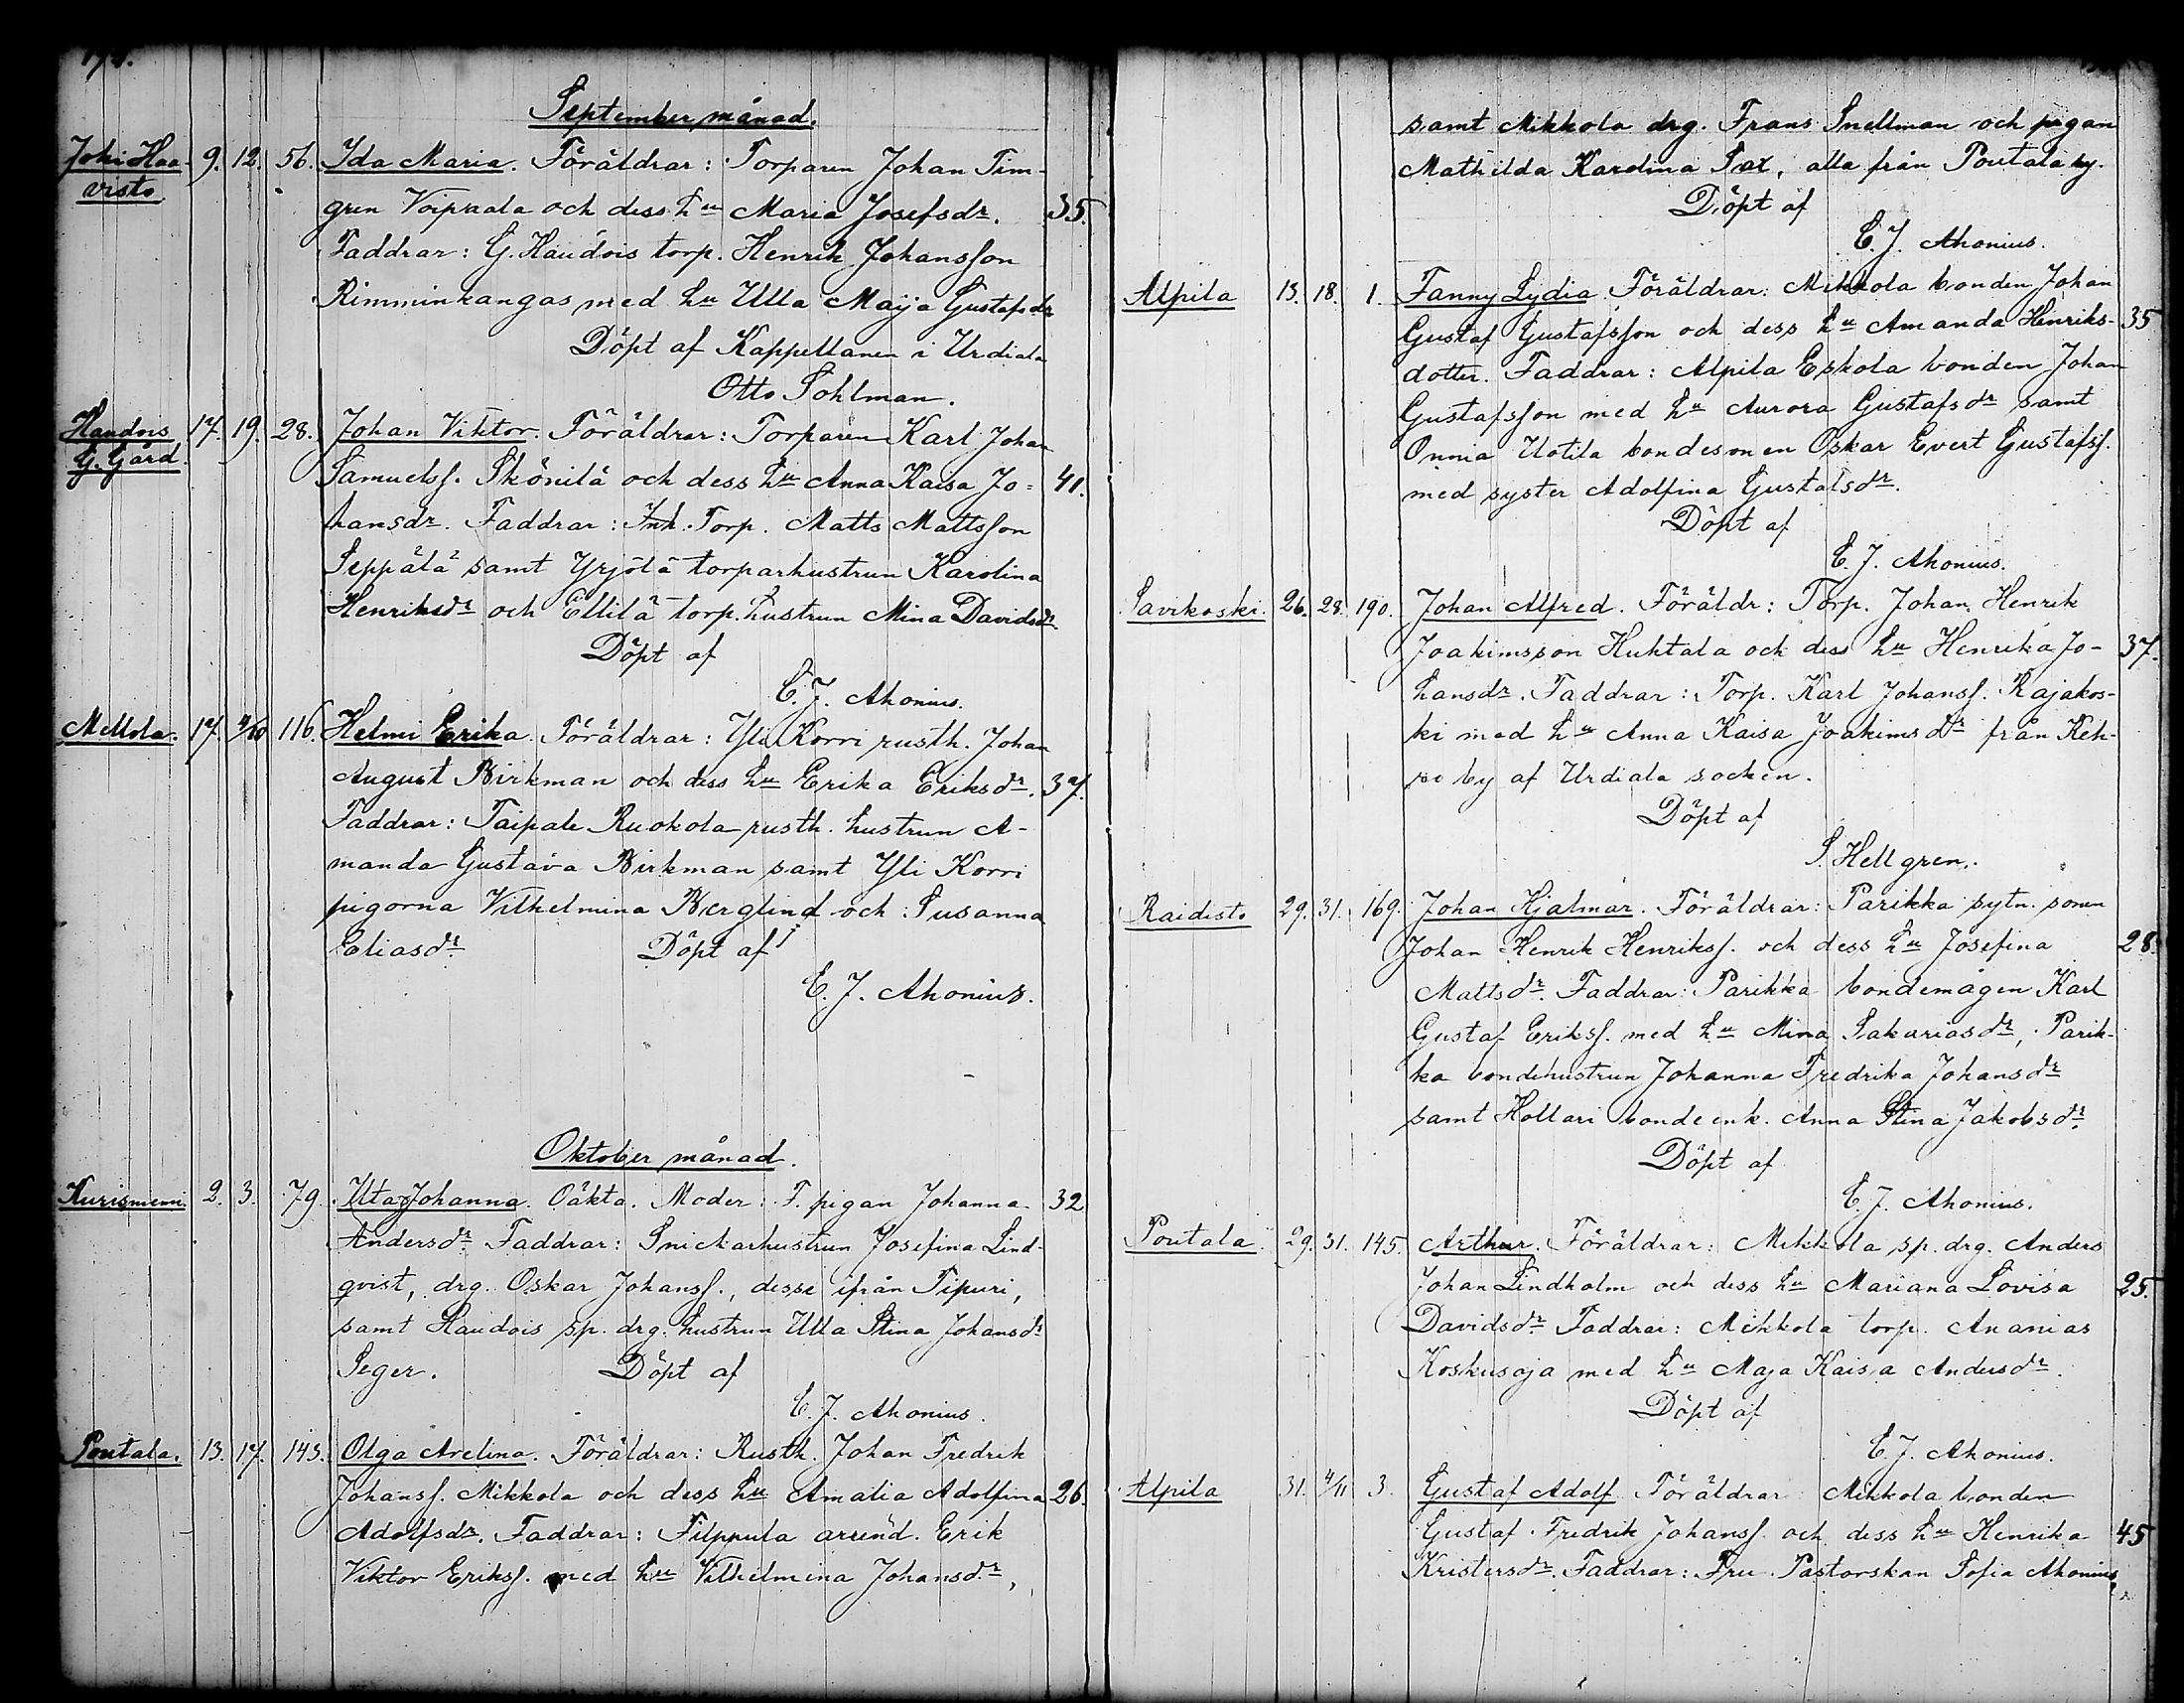 September månad.
Joki Haa- 9. 12. 56. Ida Maria. Föräldrar: Torparen Johan Tim-
visto gren Voipaala och dess hu Maria Josefsdr. 35.
Faddrar: G. Haudois torp. Henrik Johansson
Rimminkangas med hu Ulla Maija Gustafsdr
Döpt af Kappellanen i Urdiala
Otto Sohlman.
Haudois 17. 19. 28. Johan Viktor. Föräldrar: Torparen Karl Johan
G. Gård. Samuelss. Skönilä och dess hu Anna Kaisa Jo- 41.
hansdr. Faddrar: Torp. Matts Mattsson
Seppälä samt Yrjölä torparhustrun Karolina
Henriksdr och Ellilä torp. hustrun Mina Davidsdr
Döpt af
E. J. Ahonius.
Mellola. 17. 4/10 116. Helmi Erika. Föräldrar: Yli Korri rusth. Johan
August Birkman och dess hu Erika Eriksdr. 37.
Faddrar: Taipale Ruokola rusth. hustrun A-
manda Gustava Birkman samt Yli Korri
pigorna Vilhelmina Berglind och Susanna
Eliasdr Döpt af
E. J. Ahonius.
Oktober månad.
Kurisniemi. 2. 3. 79. Uta Johanna. Oäkta. Moder: F. pigan Johanna 32
Andersdr. Faddrar: Snickarhustrun Josefina Lind-
qvist, drg. Oskar Johanss., desse ifrån Tipuri,
samt Haudois sp. drg. hustrun Ulla Stina Johansdr
Seger. Döpt af
E. J. Ahonius.
Poutala. 13. 17. 143. Olga Avelina. Föräldrar: Rusth. Johan Fredrik
Johanss. Mikkola och dess hu Amalia Adolfina 26.
Adolfsdr. Faddrar: Filppula arrend. Erik
Viktor Erikss. med hu Vilhelmina Johansdr,
samt Mikkola drg. Frans Snellman och pigan
Mathilda Karolina Tax, alla från Poutala by.
Döpt af
E. J. Ahonius.
Alpila 13. 18. 1. Fanny Lydia. Föräldrar: Mikkola bonden Johan
Gustaf Gustafsson och dess hu Amanda Henriks- 35
dotter. Faddrar: Alpila Eskola bonden Johan
Gustafsson med hu Aurora Gustafsdr samt
Onnia Uotila bondesonen Oskar Evert Gustafss.
med syster Adolfina Gustafsdr.
Döpt af
E. J. Ahonius.
Savikoski. 26. 28. 190. Johan Alfred. Föräldr: Torp. Johan Henrik
Joakimsson Huhtala och dess hu Henrika Jo- 37.
hansdr. Faddrar: Torp. Karl Johanss. Rajakos-
ki med hu Anna Kaisa Joakimsdr från Keh-
ro by af Urdiala socken.
Döpt af
S. Hellgren.
Raidisto 29. 31. 169. Johan Hjalmar. Föräldrar: Parikka sytn. sonen
Johan Henrik Henrikss. och dess hu Josefina 28.
Mattsdr. Faddrar: Parikka bondemågen Karl
Gustaf Erikss. med hu Mina Sakariasdr, Parik-
ka bondehustrun Johanna Fredrika Johansdr
samt Hollari bonde enk. Anna Stina Jakobsdr.
Döpt af
E. J. Ahonius.
Poutala. 29. 31. 145. Arthur. Föräldrar: Mikkola sp. drg. Anders
Johan Lindholm och dess hu Mariana Lovisa 25.
Davidsdr. Faddrar: Mikkola torp. Ananias
Koskusoja med hu Maja Kaisa Andersdr.
Döpt af
E. J. Ahonius.
Alpila 31. 4/11 3. Gustaf Adolf. Föräldrar: Mikkola bonden
Gustaf Fredrik Johanss. och dess hu Henrika 45
Kristersdr. Faddrar: Fru Pastorskan Sofia Ahonius,